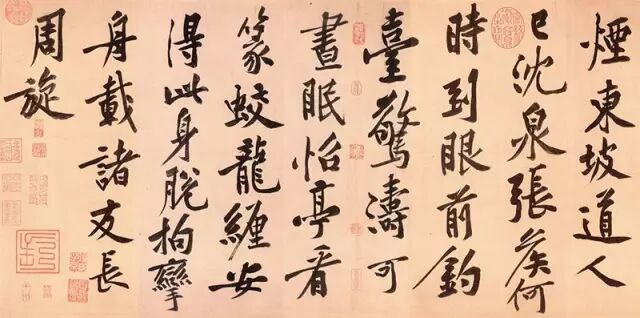 煙東坡道人
已沈泉張侯何
時到眼前釣
臺驚濤可
晝眠怡亭看
篆蛟龍纏安
得此身脫拘攣
舟載諸友長
周旋